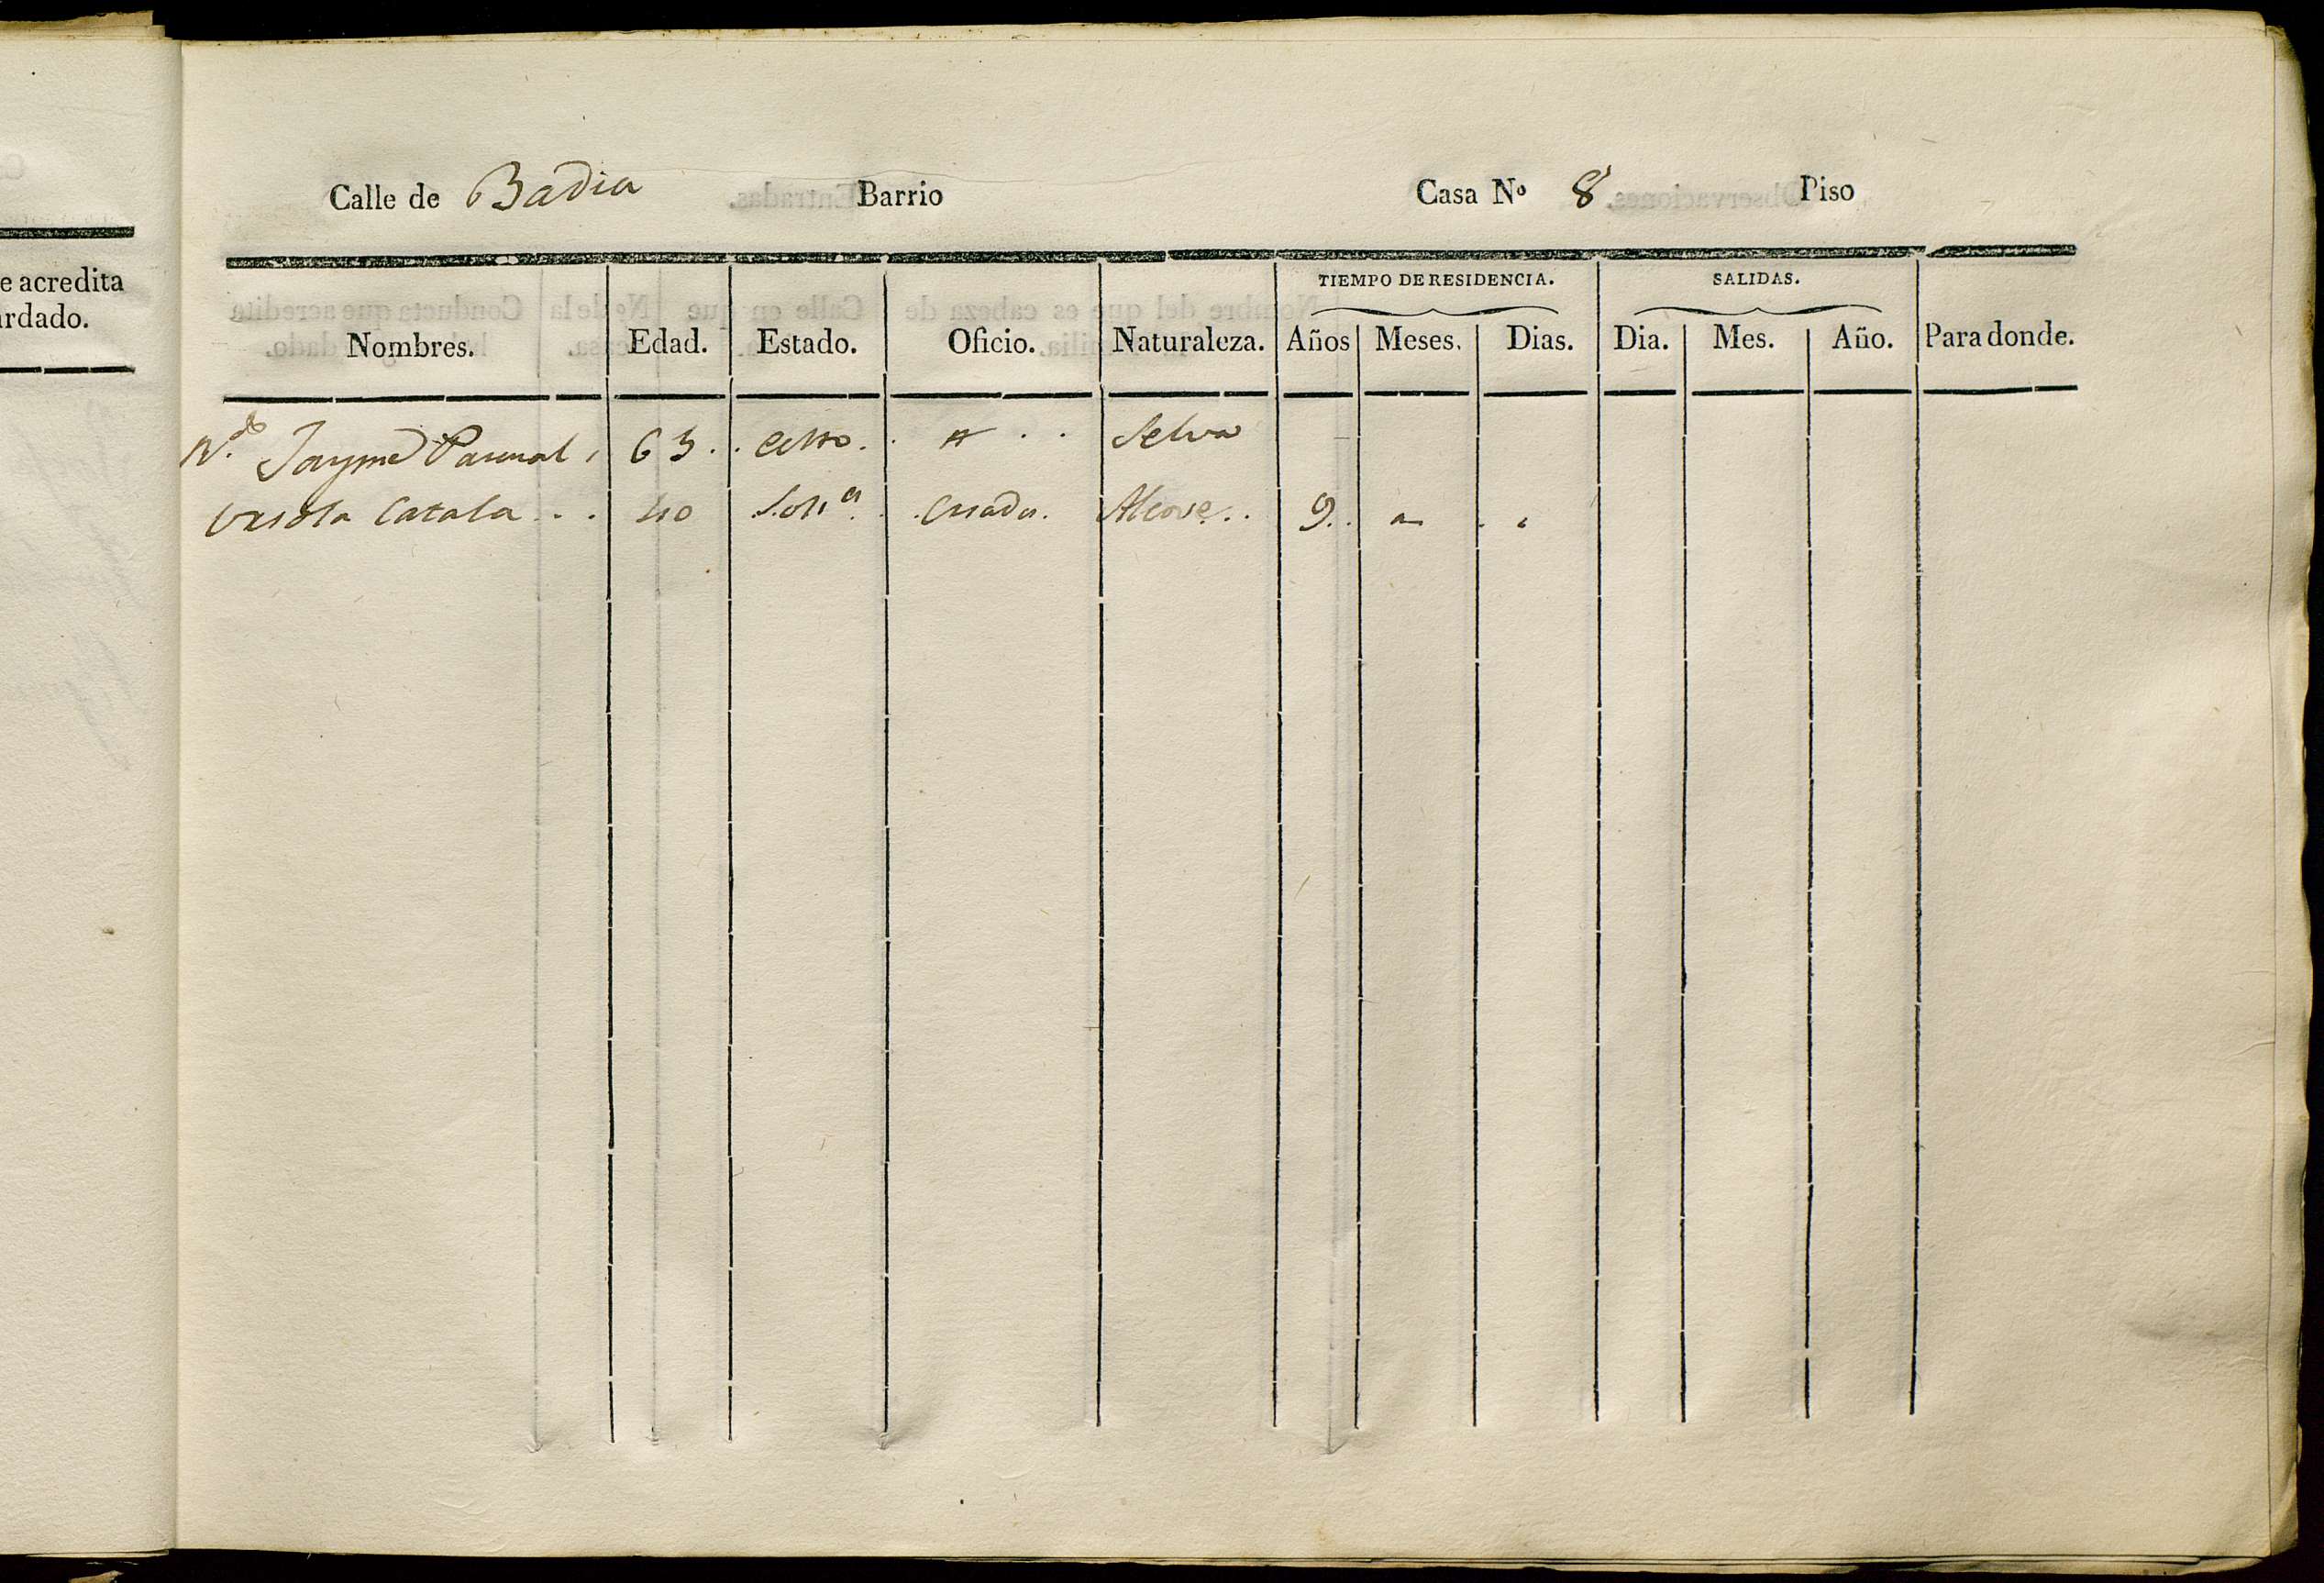 e acredita
ardado.
Calle de Badia Barrio Casa Nº 8 Piso
TIEMPO DE RESIDENCIA. SALIDAS.
Nombres. Edad. Estado. Oficio. Naturaleza. Años Meses. Dias. Dia. Mes. Año. Para donde.
Jayme Pascual 63 Selva
Ursola Catala 40 Solt.ª Criada. 9